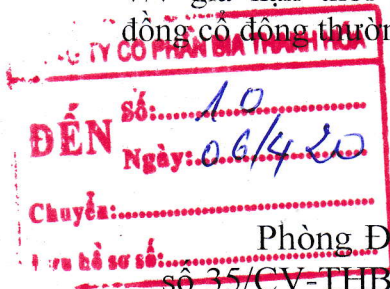 V/v gia hạn
đồng cổ đông thườn
TY CỔ PHẦN BIA THANH HÓA
ĐẾN
Số: 10
Ngày: 06/4/20
Chuyển:
Lưu hồ sơ số:
Phòng Đ
số 35/CV-THB